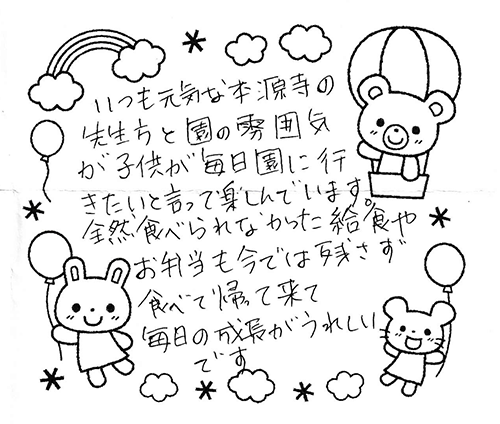 いつも元気な本源寺の
先生方と園の雰囲気
が子供が毎日園に行
きたいと言って楽しんでいます。
全然食べられなかった給食や
お弁当も今では残さず
食べて帰って来て
毎日の成長がうれしい
です